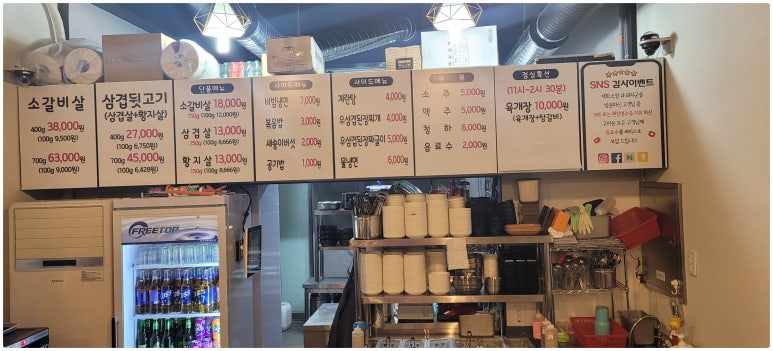 소갈비살
400g 38,000원
(100g 9,500원)
700g 63,000원
(100g 9,000원)
삼겹뒷고기
(삼겹살+황지살)
400g 27,000원
(100g 6,750원)
700g 45,000원
(100g 6,428원)
단품메뉴
소갈비살 18,000원
150g (100g 12,000원)
삼겹살 13,000원
150g (100g 8,666원)
황지살 13,000원
150g (100g 8,666원)
사이드메뉴
비빔냉면 7,000원
볶음밥 3,000원
새송이버섯 2,000원
공기밥 1,000원
사이드메뉴
계란탕 4,000원
우삼겹된장찌개 4,000원
우삼겹된장짜글이 5,000원
물냉면 6,000원
주류
소주 5,000원
맥주 5,000원
청하 6,000원
음료수 2,000원
점심특선
(11시~2시 30분)
육개장 10,000원
(육개장+탕갈비)
SNS 감사이벤트
FREETOP